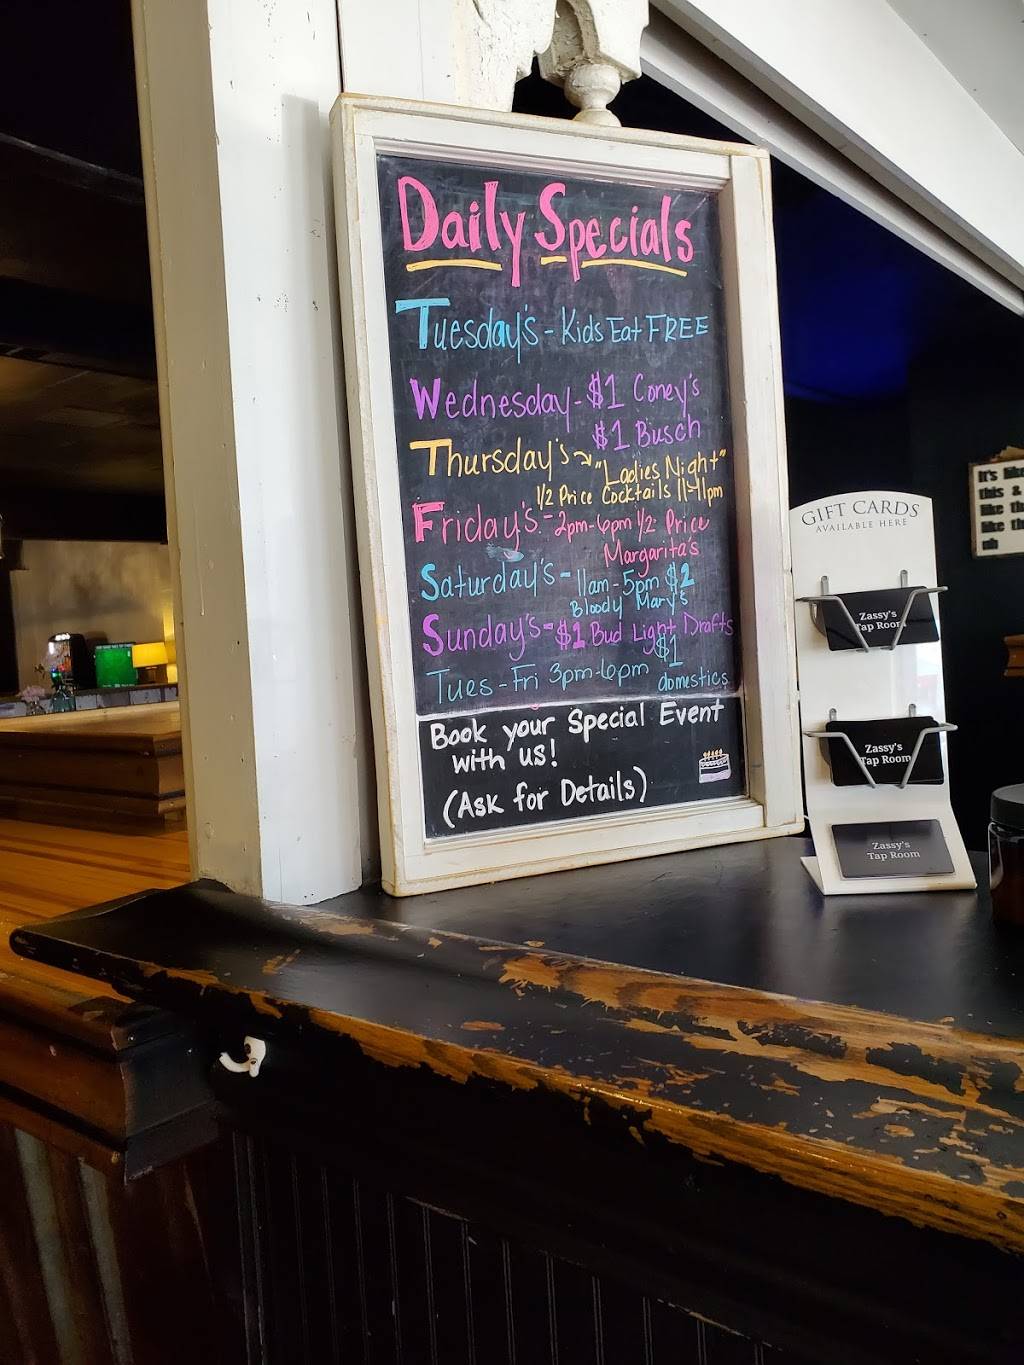 Daily Specials
Tuesday's - Kids Eat FREE
Wednesday - $1 Coney's
$1 Busch
Thursday's → "Ladies Night"
1/2 Price Cocktails 11-11pm
Friday's - 2pm-6pm 1/2 Price
Margarita's
Saturday's - 11am - 5pm $2
Bloody Mary's
Sunday's - $1 Bud Light Drafts
Tues - Fri 3pm-6pm $1
domestics
Book your Special Event
with us!
(Ask for Details)
GIFT CARDS
AVAILABLE HERE
Zassy's
Tap Room
Zassy's
Tap Room
Zassy's
Tap Room
It's like
this &
like th
like th
uh